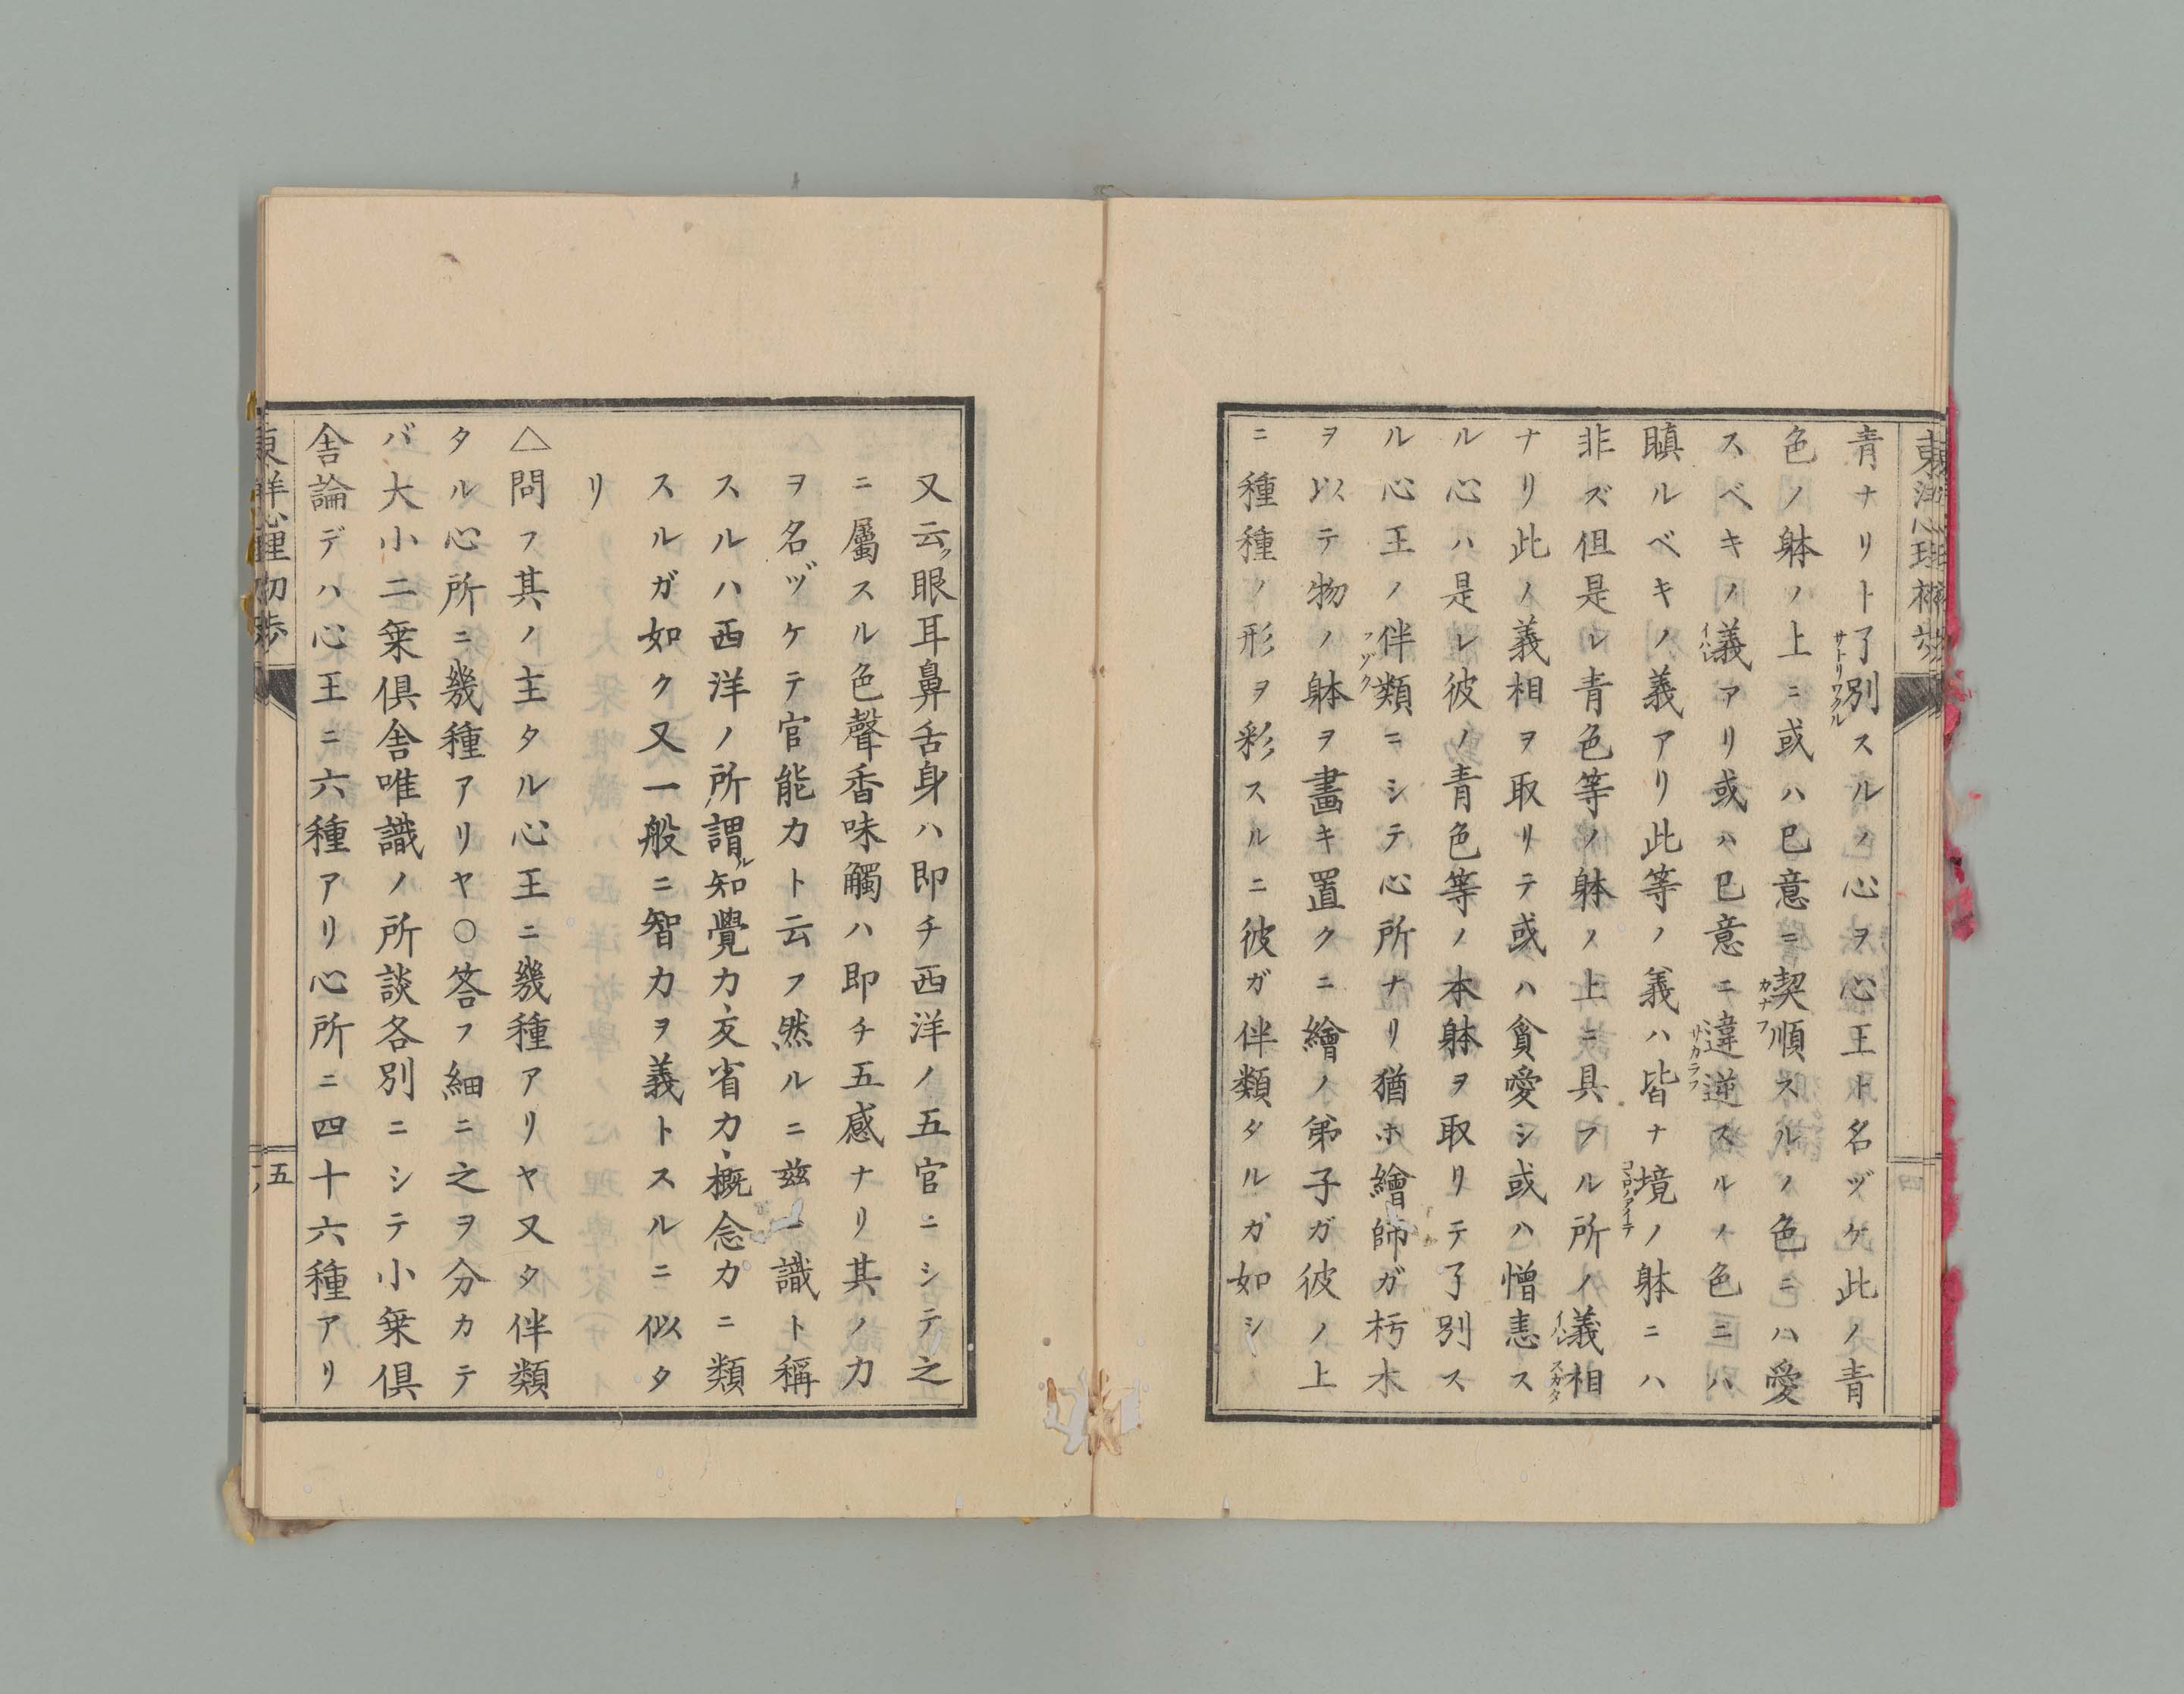 青ナリト了別スルノ心ヲ心王ト名ヅケ此ノ青
サトリワクル
色ノ躰ノ上ニ或ハ己意ニ契順スルノ色ニハ愛
カナフ
スベキノ義アリ或ハ己意ニ違逆スルノ色ニハ
イハレ
サカラフ
瞋ルベキノ義アリ此等ノ義ハ皆ナ境ノ躰ニハ
コヽロノアイテ
非ズ但是レ青色等ノ躰ノ上ニ具フル所ノ義相
イハレ
スガタ
ナリ此ノ義相ヲ取リテ或ハ貪愛シ或ハ憎恚ス
ル心ハ是レ彼ノ青色等ノ本躰ヲ取リテ了別ス
ル心王ノ伴類ニシテ心所ナリ猶ホ繪師ガ朽木
ヲ以テ物ノ躰ヲ畫キ置クニ繪ノ弟子ガ彼ノ上
ニ種種ノ形ヲ彩スルニ彼ガ伴類タルガ如シ
又云眼耳鼻舌身ハ即チ西洋ノ五官ニシテ之
ニ屬スル色聲香味觸ハ即チ五感ナリ其ノ力
ヲ名ヅケテ官能力ト云フ然ルニ茲ニ識ト稱
スルハ西洋ノ所謂ル知覺力、反省力、概念力ニ類
スルガ如ク又一般ニ智力ヲ義トスルニ似タ
リ
△問フ其ノ主タル心王ニ幾種アリヤ又タ伴類
タル心所ニ幾種アリヤ○答フ細ニ之ヲ分カテ
バ大小二乗俱舎唯識ノ所談各別ニシテ小乗俱
舎論デハ心王ニ六種アリ心所ニ四十六種アリ
東洋心理初歩
五